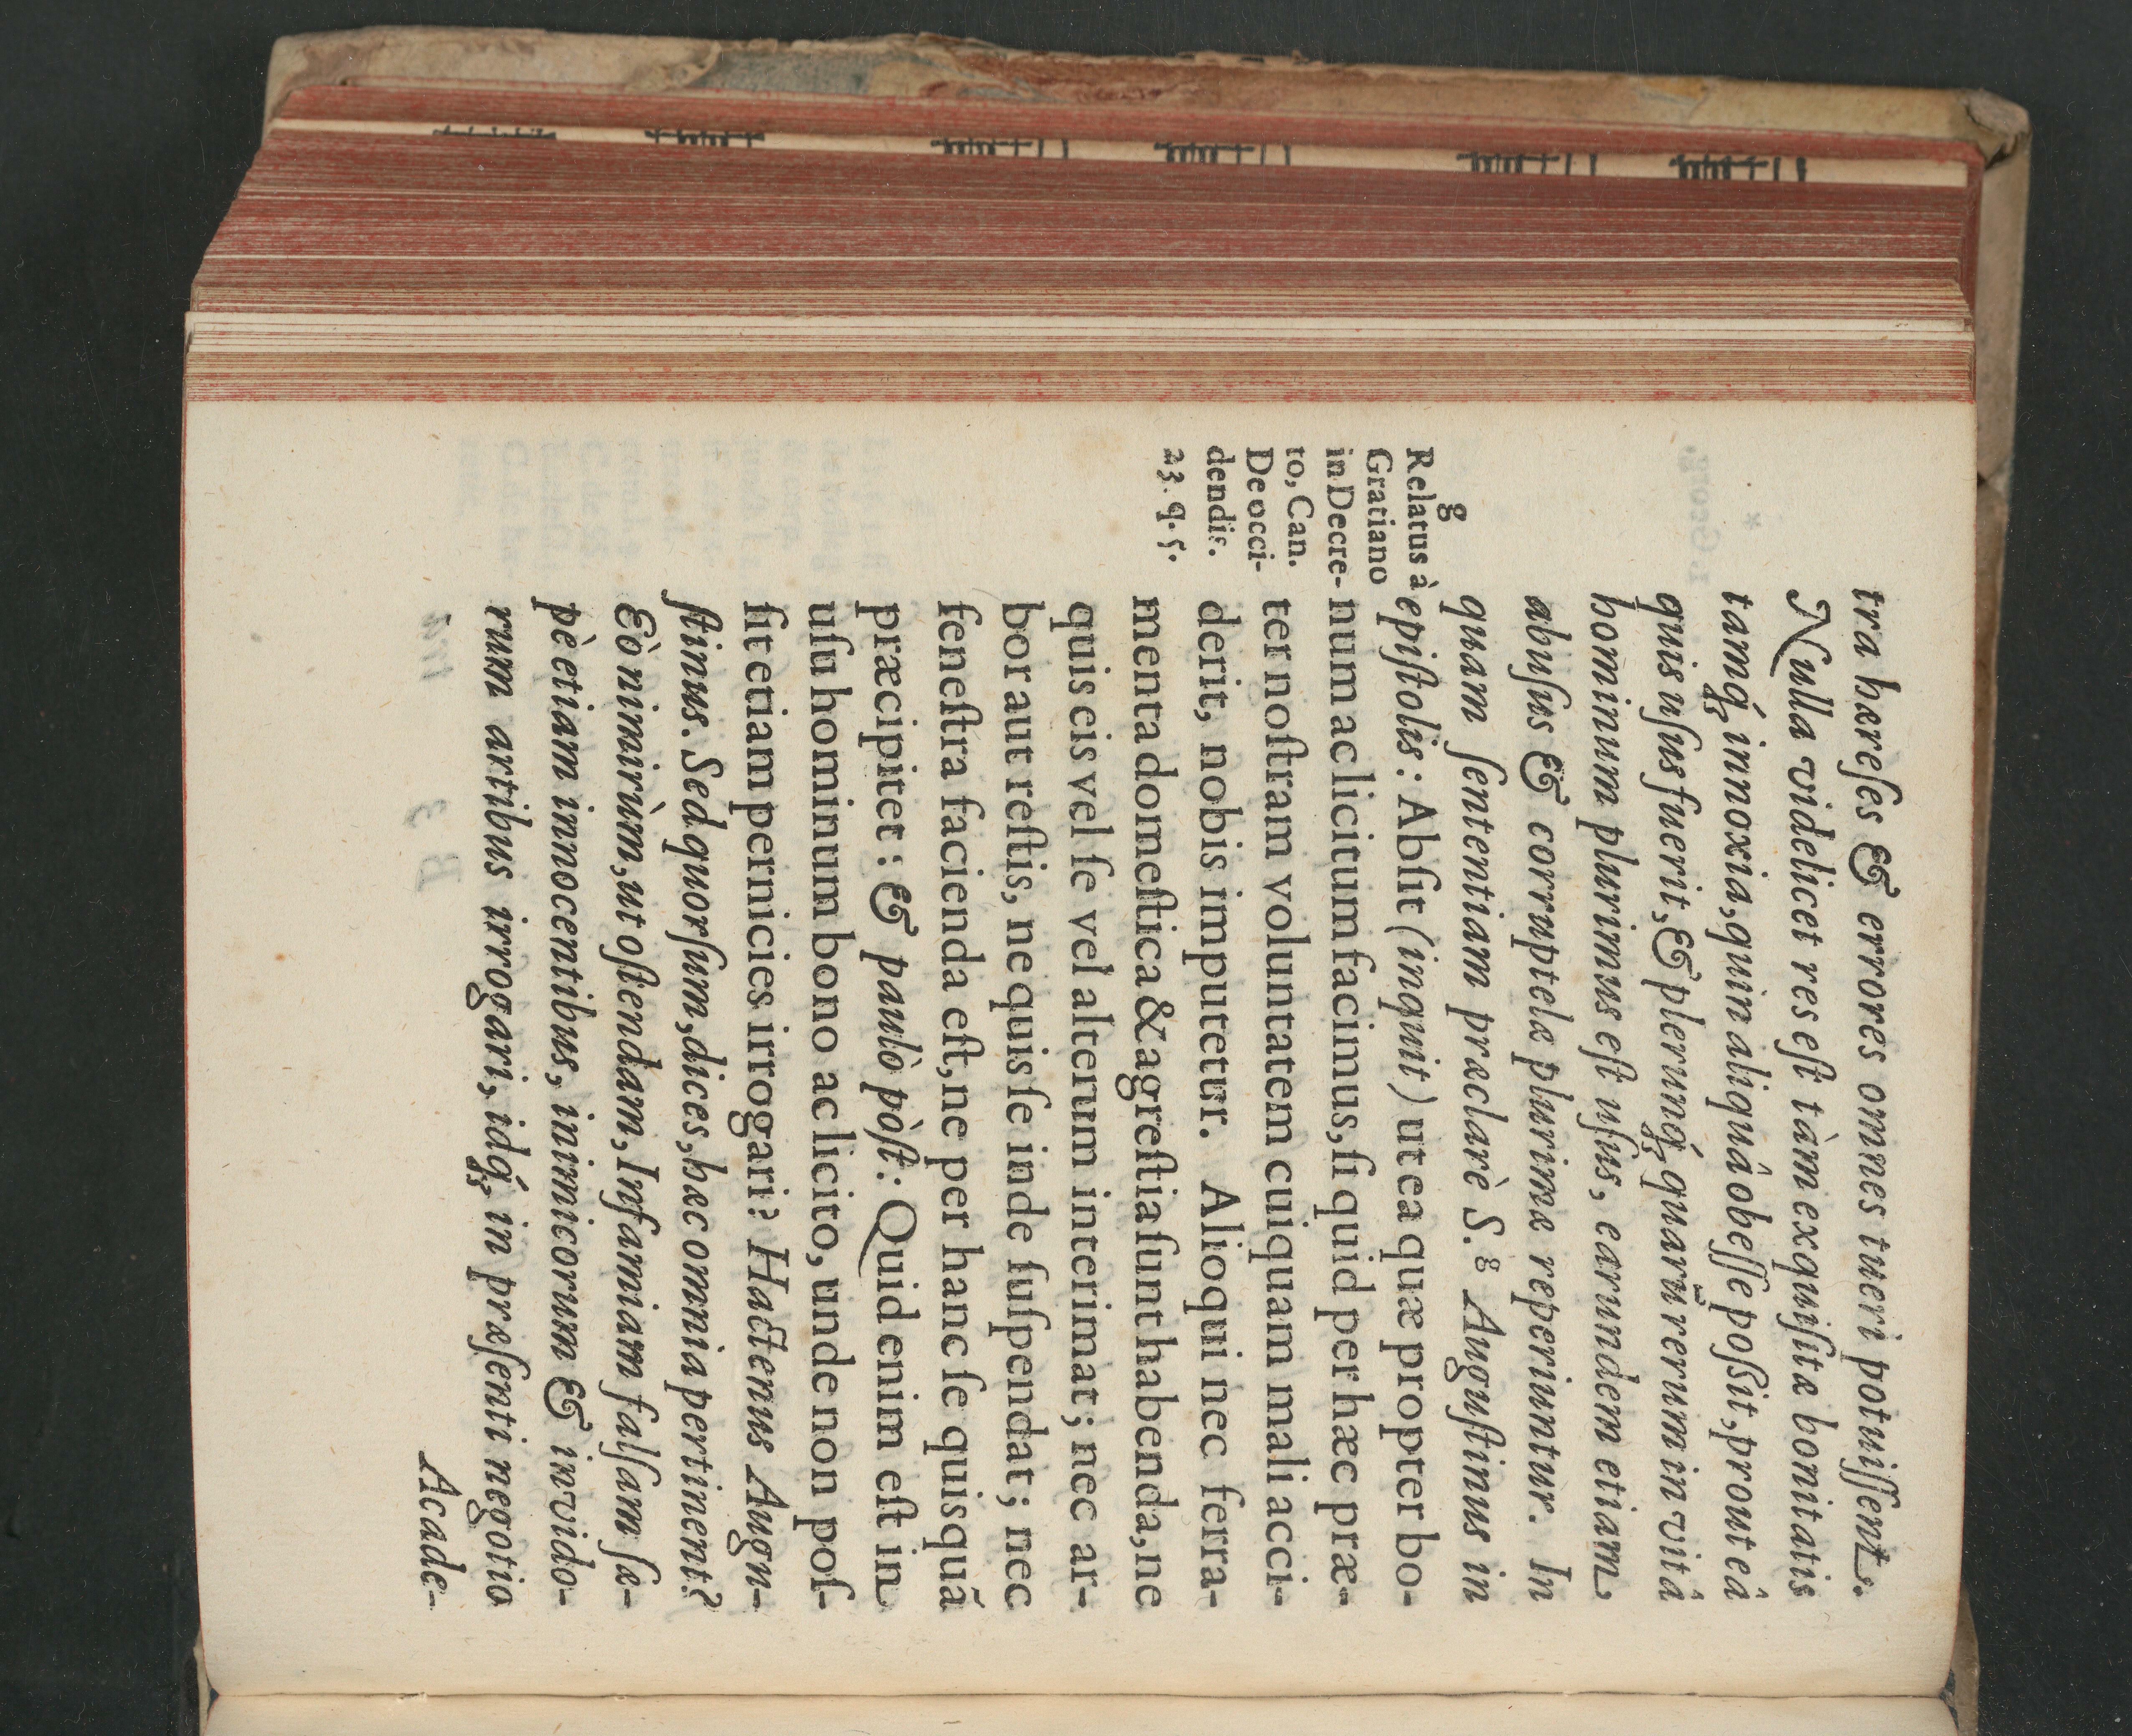 tra hæreſes & errores omnes tueri potuiſſent.
Nulla videlicet res eſt tàm exquiſitæ bonitatis
tamq́ue innoxia, quin aliquâ obeſſe poſsit, prout eâ
quis uſus fuerit, & plerunq́ue quarũ rerum in vitâ
hominum plurimus eſt uſus, earundem etiam
abuſus & corruptelæ plurimæ reperiuntur. In
quam ſententiam præclarè S. g Auguſtinus in
epiſtolis: Abſit (inquit) ut ea quæ propter bo-
num ac licitum facimus, ſi quid per hæc præ-
ter noſtram voluntatem cuiquam mali acci-
derit, nobis imputetur. Alioqui nec ferra-
menta domeſtica & agreſtia ſunt habenda, ne
quis eis vel ſe vel alterum interimat; nec ar-
bor aut reſtis, ne quis ſe inde ſuſpendat; nec
feneſtra facienda eſt, ne per hanc ſe quisquã
præcipitet: & paulò pòſt: Quid enim eſt in
uſu hominum bono ac licito, unde non poſ-
ſit etiam pernicies irrogari? Hactenus Augu-
ſtinus. Sed quorſum, dices, hæc omnia pertinent?
Eò nimirùm, ut oſtendam, Infamiam falſam ſæ-
pè etiam innocentibus, inimicorum & invido-
rum artibus irrogari, idq́ue in præſenti negotio
Acade-
g
Relatus à
Gratiano
in Decre-
to, Can.
De occi-
dendis.
23. q. 5.